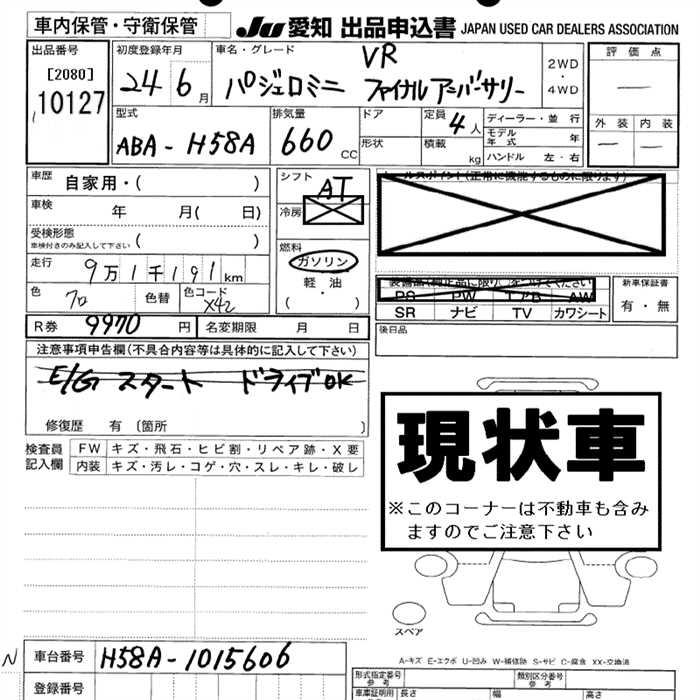 車内保管・守衛保管
JU 愛知 出品申込書 JAPAN USED CAR DEALERS ASSOCIATION
出品番号
[2080]
10127
初度登録年月
24 6月
車名・グレード
VR
パジェロミニ ファイナルアニバーサリー
2WD
・
4WD
評価点
—
外装 内装
— —
型式
ABA-H58A
排気量
660 CC
ドア
形状
定員
4人
積載
kg
ディーラー・並行
モデル年式 年
ハンドル 左・右
車歴 自家用・( )
車検 年 月( 日)
受検形態
車検付きのみ記入して下さい ( )
走行 9万1千191km
色 クロ 色替 色コード X42
シフト
AT
冷房
燃料
ガソリン
軽・油
( ・ )
セールスポイント(正常に機能するものに限ります)
装備品(純正品に限り○をつけてください)
PS PW エアB AW
SR ナビ TV カワシート
新車保証書
有・無
R券 9970円 名変期限 月 日
後日品
注意事項申告欄(不具合内容等は具体的に記入して下さい)
E/G スタート ドライブOK
修復歴 有 〔箇所 〕
検査員
記入欄
FW キズ・飛石・ヒビ割・リペア跡・X要
内装 キズ・汚レ・コゲ・穴・スレ・キレ・破レ
現状車
※このコーナーは不動車も含み
ますのでご注意下さい
スペア
A-キズ E-エクボ U-凹み W-補修跡 S-サビ C-腐食 XX-交換済
N
車台番号 H58A-1015606
登録番号
形式指定番号
参考
類別区分番号
参考
車庫証明用
長さ 幅 高さ